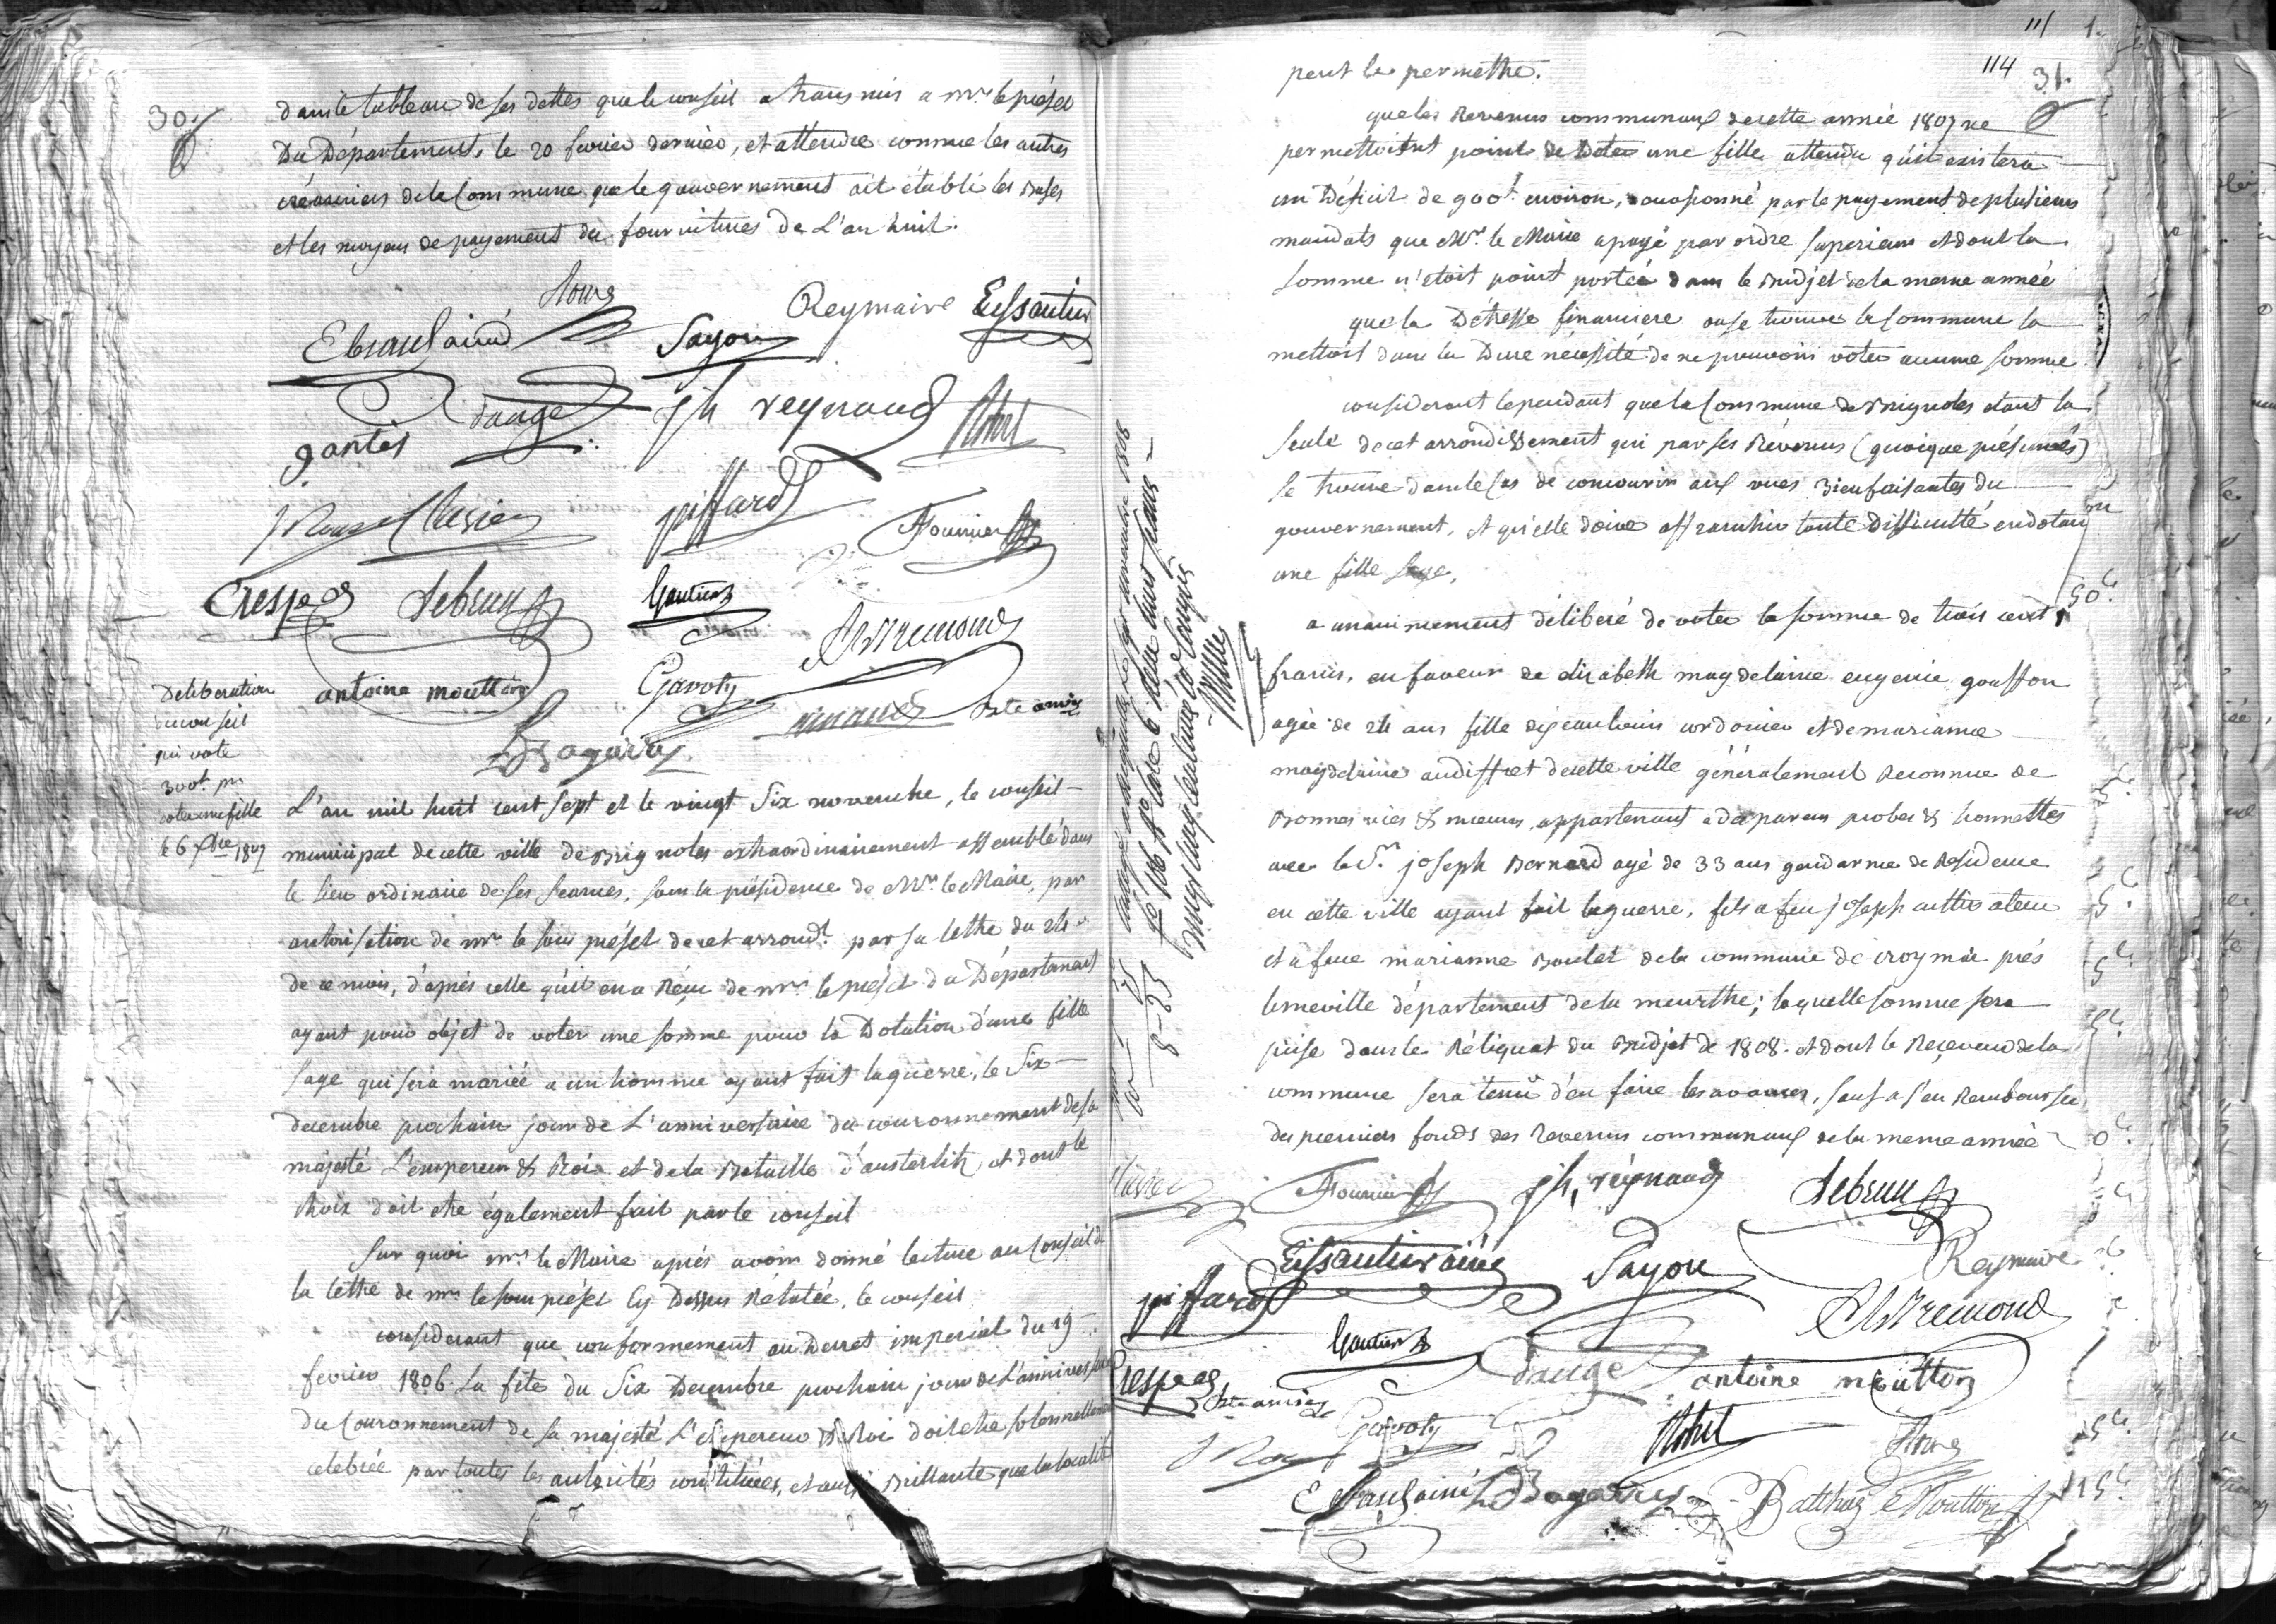 30.
dans le tableau de ses dettes que le conseil a transmis a mr. le préfet
Du Département, le 20 fevrier dernier, et attendre comme les autres
créanciers de la Commune que le gouvernement ait établi les bases
et les moyens de payement des fournitures de L'an huit.
Reymaire Eyssautier
Sayou
gantés dauge jh reynaud
piffard Fournier
Crespe Lebrun Gautier
antoine moutton Gavoty
Bagarry
Deliberation
du conseil
qui vote
300f. pr.
doter une fille
le 6 xbre 1807
L'an mil huit cent sept et le vingt Six novembre, le conseil
municipal de cette ville de Brignoles extraordinairement assemblé dans
le lieu ordinaire de ses séances, sous la présidence de Mr. le Maire, par
autorisation de mr. le sous préfet de cet arrondt. par sa lettre du 24
de ce mois, d'aprés celle qu'il en a Réçu de mr. le préfet du Département
ayant pour objet de voter une somme pour la Dotation d'une fille
sage qui sera mariée a un homme ayant fait la guerre, le Six
decembre prochain jour de L'anniversaire du couronnement de sa
majesté L'empereur & Roi et de la Bataille d'austerlitz, et dont le
choix doit etre également fait par le conseil
Sur quoi mr. le Maire aprés avoir donné lecture au Conseil de
la lettre de mr. le sous préfet Cy Dessus Rélatée, le conseil
considerant que conformement au Decret imperial du 19
fevrier 1806. La fête du Six Decembre prochain jour de L'anniversaire
du Couronnement de sa majesté L'Empereur & Roi doit etre solennellement
celebrée par toutes les autorités constituées, et aussi Brillante que la localité
111 1.
114 31.
peut le permettre.
que les Revenus communaux de cette année 1807 ne
permettoient point de Doter une fille attendu qu'il existera
un Déficit de 900f. environ, occasionné par le payement de plusieurs
mandats que Mr. le Maire a payé par ordre superieur et dont la
somme n'etoit point portée dans le Budjet de la meme année
que la Détresse financiere ou se trouve la Commune la
mettoit dans la Dure nécessité de ne pouvoir voter aucune somme
considerant Cependant que la Commune de Brignoles etant la
seule de cet arrondissement qui par ses Révenus (quoique présumés)
se trouve dans le Cas de concourir aux vues Bienfaisantes du
gouvernement, et qu'elle doive affranchir toute Difficulté en dotant
une fille sage,
a unanimement déliberé de voter la somme de trois cent
francs, en faveur de elisabeth magdelaine eugenie gouffon
agée de 24 ans fille de jean louis cordonier et de marianne
magdelaine audiffret de cette ville généralement Reconnue de
Bonnes vies & mœurs, appartenant a des parens probes & honnettes
avec le Sr. joseph Bernard agé de 33 ans gendarme de Residence
en cette ville ayant fait la guerre, fils a feu joseph cultivateur
et a feue marianne Boulet de la commune de croymare prés
luneville département de la meurthe; laquelle somme sera
prise dans le Réliquat du Budjet de 1808. et dont le Reçeveur de la
commune sera tenu d'en faire les avances, sauf a s'en Rembourser
des premiers fonds des Revenus communaux de la meme année
Fournier jh, réynaud Lebrun
Eyssautier ainé Sayou Reymaire
piffard
Gautier dauge antoine moutton
Crespe
Gavoty
Bagarry Balthaz Moutton